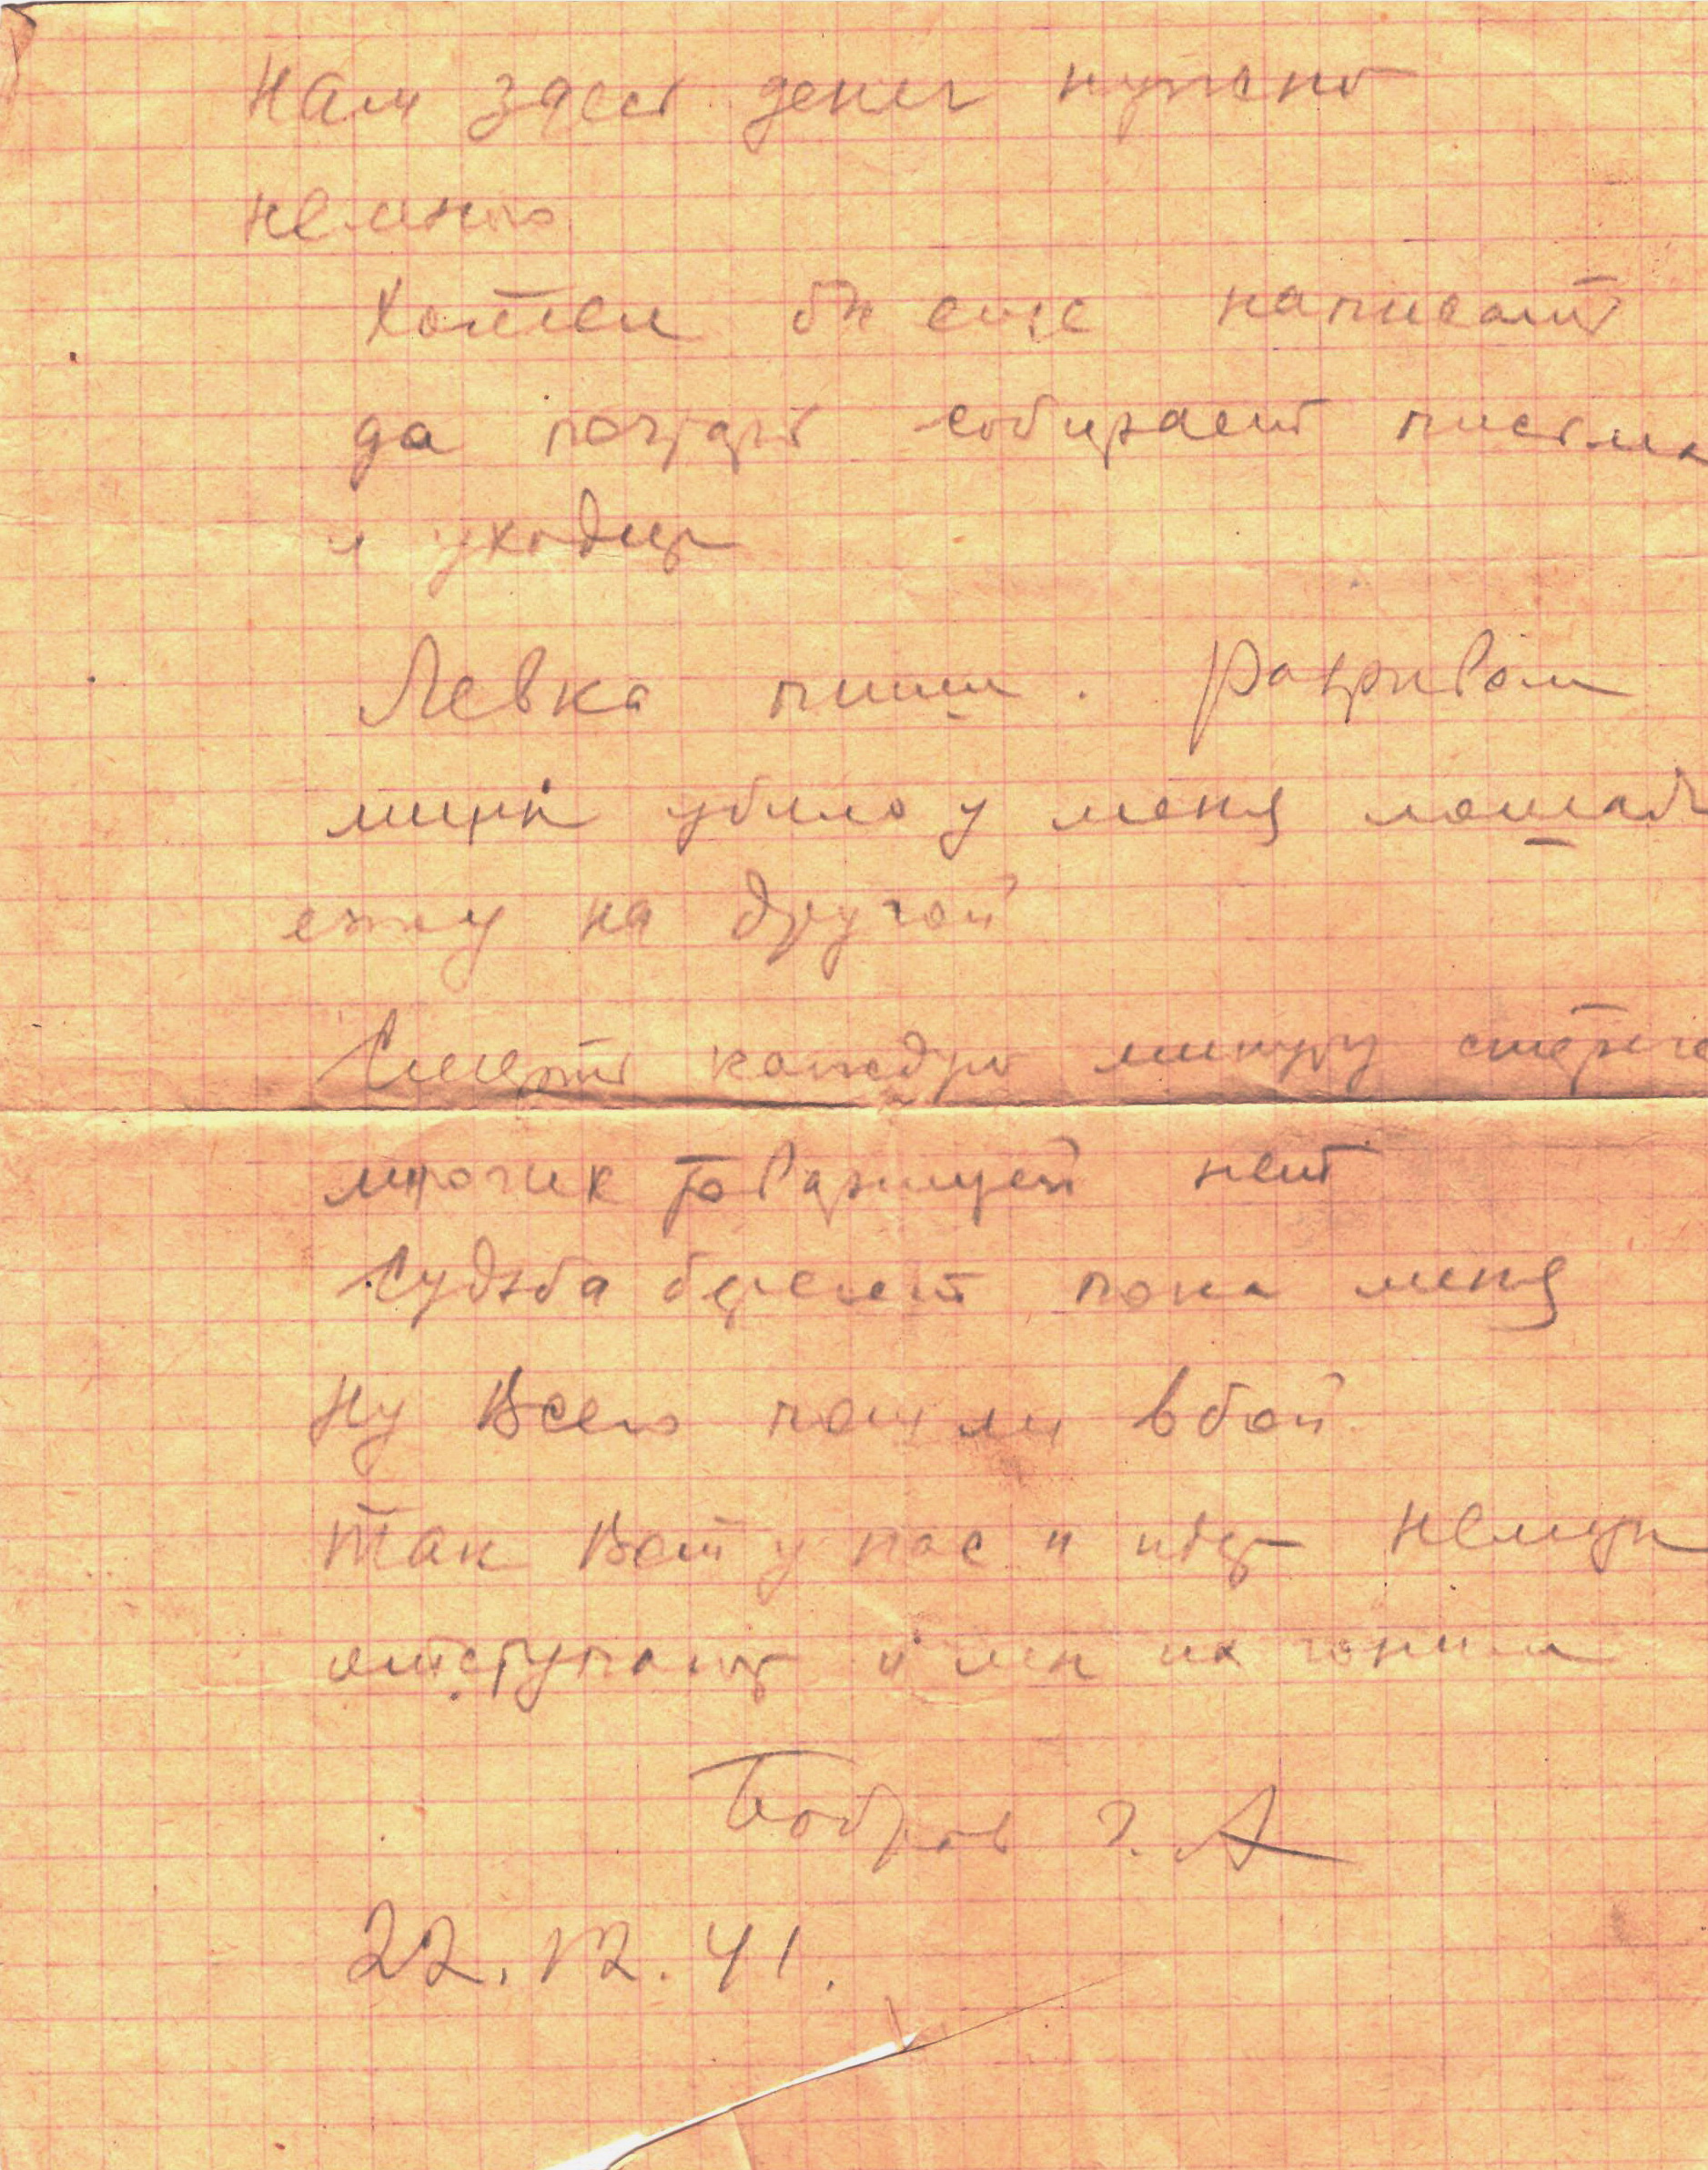 Нам здесь денег нужно
немного
Хотел бы еще написать
да почтарь собирает письма
и уходит
Левка пиши. Разрывом
мины убило у меня лошадь
езжу на другой
Смерть каждую минуту стереже
многих товарищей нет
Судьба бережет пока меня
Ну Всего пошли в бой
Так Вот у нас и идет Немцы
отступают и мы их гоним
Бобров Г. А
22.12.41.